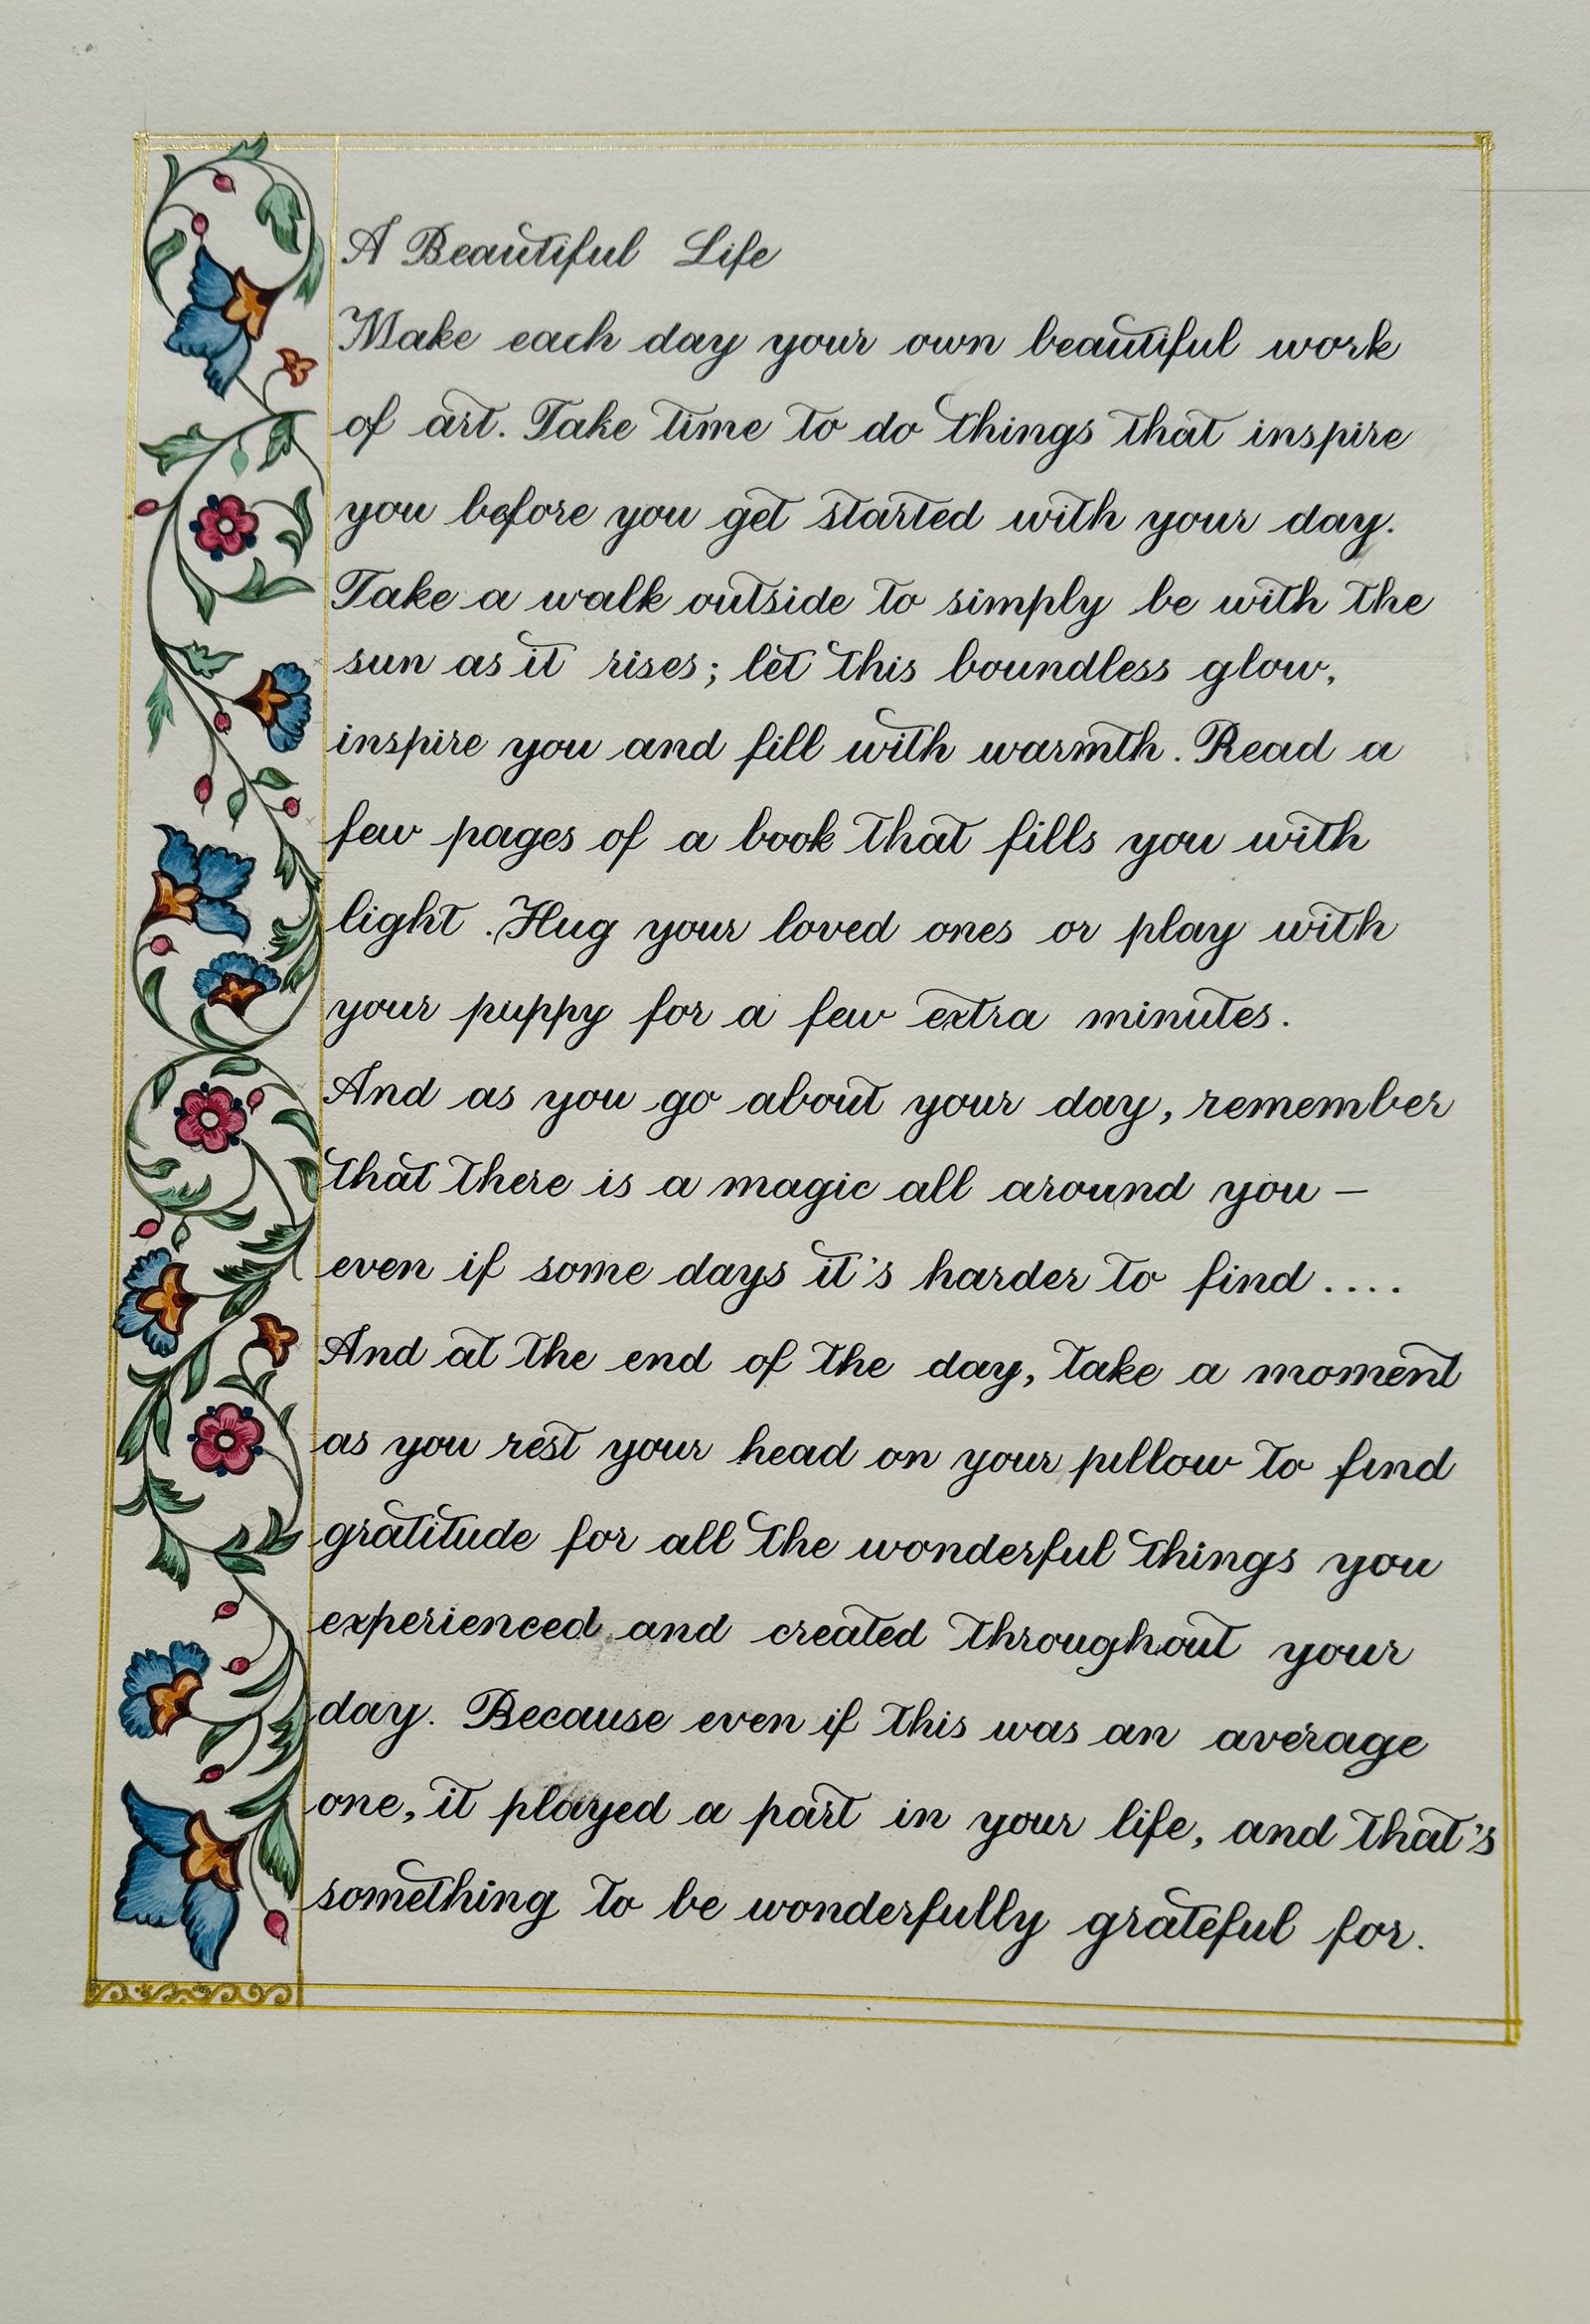 A Beautiful Life
Make each day your own beautiful work
of art. Take time to do things that inspire
you before you get started with your day.
Take a walk outside to simply be with the
sun as it rises; let this boundless glow,
inspire you and fill with warmth. Read a
few pages of a book that fills you with
light. Hug your loved ones or play with
your puppy for a few extra minutes.
And as you go about your day, remember
that there is a magic all around you –
even if some days it's harder to find....
And at the end of the day, take a moment
as you rest your head on your pillow to find
gratitude for all the wonderful things you
experienced and created throughout your
day. Because even if this was an average
one, it played a part in your life, and that's
something to be wonderfully grateful for.